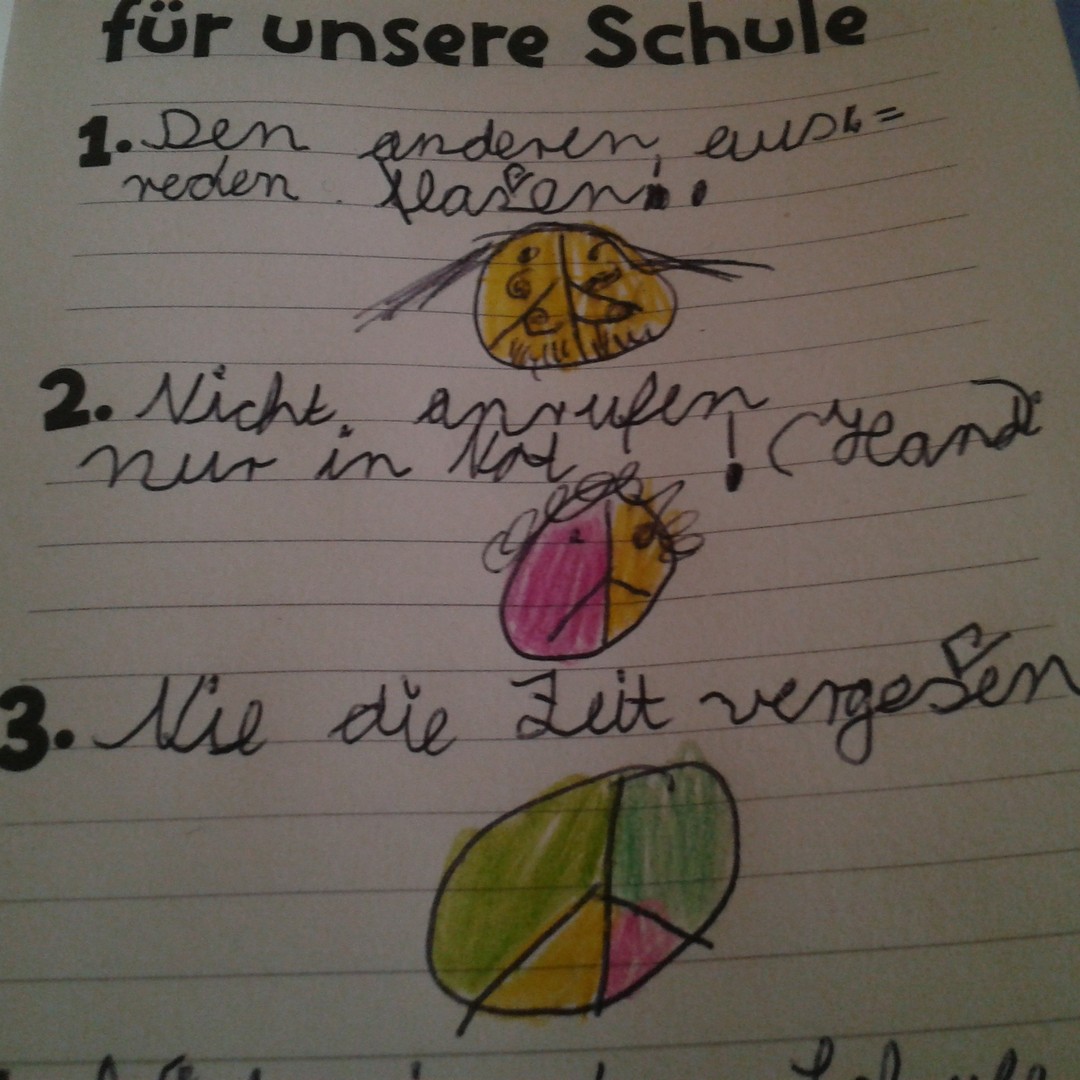 für unsere Schule
1. Den anderen aus=
reden laßen!
2. Nicht anrufen
nur in Not! (Hand
3. Nie die Zeit vergeßen